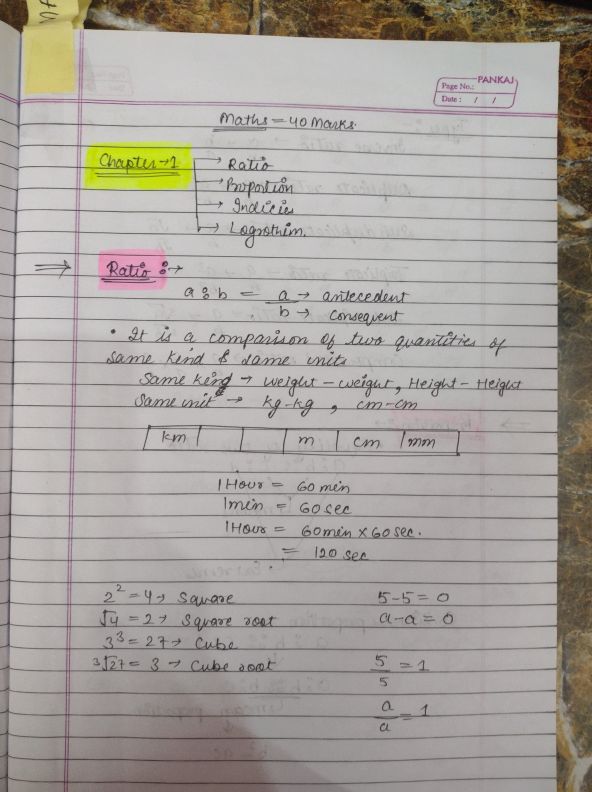 PANKAJ
Page No.:
Date : / /
Maths = 40 Marks.
Chapter → 1
→ Ratio
→ Proportion
→ Indicies
→ Logrothim.
⇒ Ratio :→
a : b = a → antecedent
b → consequent
• It is a comparison of two quantities of
same kind & same units
Same kind → weight - weight, Height - Height
Same unit → kg-kg , cm-cm
km | | | m | cm | mm
1 Hour = 60 min
1 min = 60 sec
1 Hour = 60 min × 60 sec.
= 120 sec
2² = 4 → Square
√4 = 2 → Square root
3³ = 27 → Cube
³√27 = 3 → Cube root
5-5 = 0
a-a = 0
5/5 = 1
a/a = 1